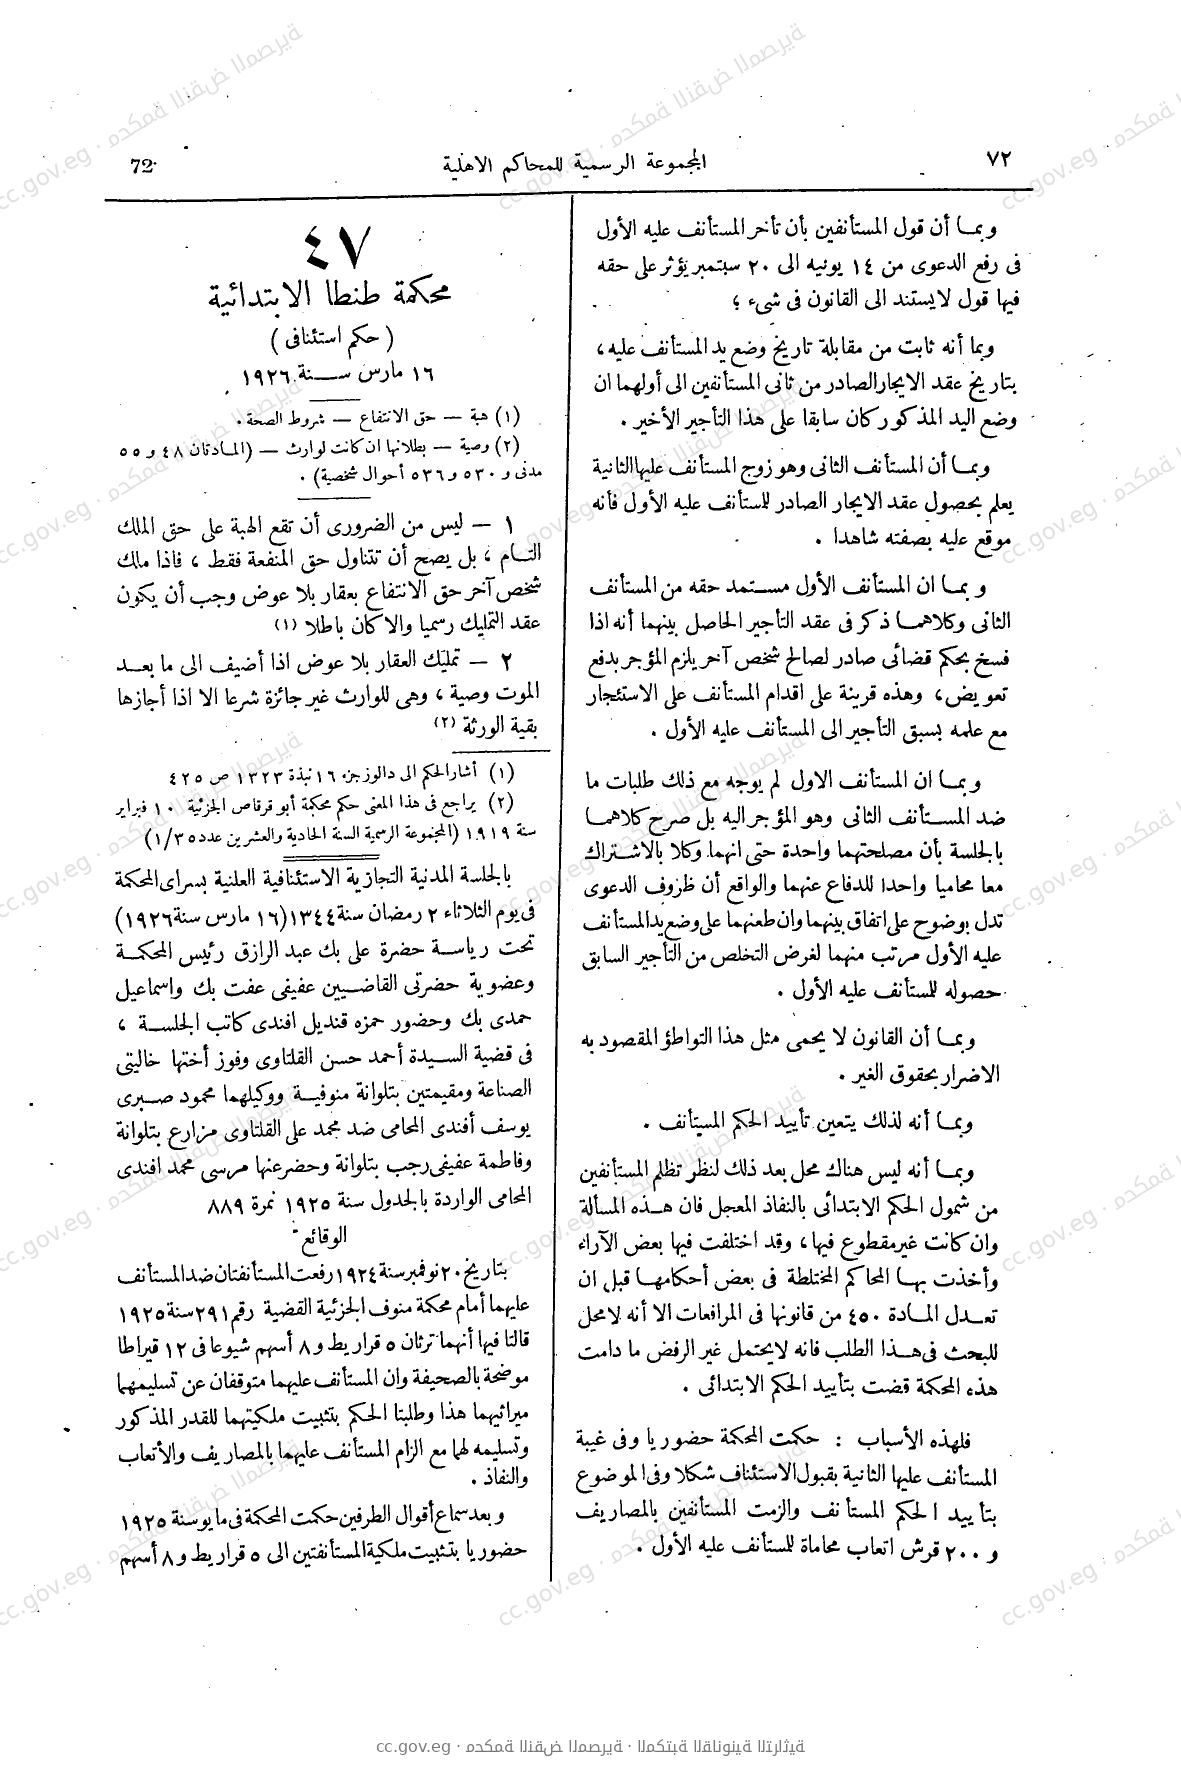 ٧٢
المجموعة الرسمية للمحاكم الاهلية
72
وبمـا أن قول المستأنفين بأن تأخر المستأنف عليه الأول
فى رفع الدعوى من ١٤ يونيه الى ٢٠ سبتمبر يؤثر على حقه
فيها قول لا يستند الى القانون فى شىء ؛
وبما أنه ثابت من مقابلة تاريخ وضع يد المستأنف عليه ،
بتاريخ عقد الايجار الصادر من ثانى المستأنفين الى أولهما ان
وضع اليد المذكور كان سابقا على هذا التأجير الأخير .
وبمـا أن المستأنف الثانى وهو زوج المستأنف عليها الثانية
يعلم بحصول عقد الايجار الصادر للستأنف عليه الأول فأنه
موقع عليه بصفته شاهدا .
وبمـا ان المستأنف الأول مستمد حقه من المستأنف
الثانى وكلاهمـا ذكر فى عقد التأجير الحاصل بينهما أنه اذا
فسخ بحكم قضائى صادر لصالح شخص آخر يلزم المؤجر بدفع
تعويض ، وهذه قرينة على اقدام المستأنف على الاستئجار
مع علمه بسبق التأجير الى المستأنف عليه الأول .
وبمـا ان المستأنف الاول لم يوجه مع ذلك طلبات ما
ضد المستأنف الثانى وهو المؤجر اليه بل صرح كلاهمـا
بالجلسة بأن مصلحتهما واحدة حتى انهما وكلا بالاشتراك
معا محاميا واحدا للدفاع عنهما والواقع أن ظروف الدعوى
تدل بوضوح على اتفاق بينهما وان طعنهما على وضع يد المستأنف
عليه الأول مرتب منهما لغرض التخلص من التأجير السابق
حصوله للستأنف عليه الأول .
وبمـا أن القانون لا يحمى مثل هذا التواطؤ المقصود به
الاضرار بحقوق الغير .
وبمـا أنه لذلك يتعين تأييد الحكم المستأنف .
وبمـا أنه ليس هناك محل بعد ذلك لنظر تظلم المستأنفين
من شمول الحكم الابتدائى بالنفاذ المعجل فان هـذه المسألة
وان كانت غير مقطوع فيها ، وقد اختلفت فيها بعض الآراء
وأخذت بهـا المحاكم المختلطة فى بعض أحكامهـا قبل ان
تعـدل المـادة ٤٥٠ من قانونها فى المرافعات الا أنه لا محل
للبحث فى هـذا الطلب فانه لا يحتمل غير الرفض ما دامت
هذه المحكمة قضت بتأييد الحكم الابتدائى .
فلهذه الأسباب : حكمت المحكمة حضوريا وفى غيبة
المستأنف عليها الثانية بقبول الاستئناف شكلا وفى الموضوع
بتأييد الحكم المستأنف والزمت المستأنفين بالمصاريف
و ٢٠٠ قرش اتعاب محاماة للستأنف عليه الأول .
٤٧
محكمة طنطا الابتدائية
( حكم استئنافى )
١٦ مارس سـنة ١٩٢٦
(١) هبة — حق الانتفاع — شروط الصحة .
(٢) وصية — بطلانها ان كانت لوارث — (المـادتان ٤٨ و ٥٥
مدنى و ٥٣٠ و ٥٣٦ أحوال شخصية) .
١ — ليس من الضرورى أن تقع الهبة على حق الملك
التـام ، بل يصح أن تتناول حق المنفعة فقط ، فاذا ملك
شخص آخر حق الانتفاع بعقار بلا عوض وجب أن يكون
عقد التمليك رسميا والا كان باطلا (١)
٢ — تمليك العقار بلا عوض اذا أضيف الى ما بعـد
الموت وصية ، وهى للوارث غير جائزة شرعا الا اذا أجازها
بقية الورثة (٢)
(١) أشار الحكم الى دالوز جزء ١٦ نبذة ١٣٢٣ ص ٤٢٥
(٢) يراجع فى هذا المعنى حكم محكمة أبو قرقاص الجزئية ١٠ فبراير
سنة ١٩١٩ (المجموعة الرسمية السنة الحادية والعشرين عدد ١/٣٥)
بالجلسة المدنية التجارية الاستئنافية العلنية بسراى المحكمة
فى يوم الثلاثاء ٢ رمضان سنة ١٣٤٤ (١٦ مارس سنة ١٩٢٦)
تحت رياسـة حضرة على بك عبد الرازق رئيس المحكمـة
وعضوية حضرتى القاضـيين عفيفى عفت بك واسماعيل
حمدى بك وحضور حمزه قنديل افندى كاتب الجلسـة ،
فى قضية السـيدة أحمد حسن القلتاوى وفوز أختها خاليتى
الصناعة ومقيمتين بتلوانة منوفيـة ووكيلهما محمود صـبرى
يوسف أفندى المحامى ضد محمد على القلتاوى مزارع بتلوانة
وفاطمة عفيفى رجب بتلوانة وحضر عنها مرسى محمد افندى
المحامى الواردة بالجدول سنة ١٩٢٥ نمرة ٨٨٩
الوقائع
بتاريخ ٢٠ نوفمبر سنة ١٩٢٤ رفعت المستأنفتان ضد المستأنف
عليهما أمام محكمة منوف الجزئية القضية رقم ٢٩١ سنة ١٩٢٥
قالتا فيها أنهما ترثان ٥ قراريط و ٨ أسهم شيوعا فى ١٢ قيراطا
موضحة بالصحيفة وان المستأنف عليهما متوقفان عن تسليمهما
ميراثيهما هذا وطلبتا الحكم بتثبيت ملكيتهما للقدر المذكور
وتسليمه لهما مع الزام المستأنف عليهما بالمصاريف والأتعاب
والنفاذ .
وبعد سماع أقوال الطرفين حكمت المحكمة فى مايو سنة ١٩٢٥
حضوريا بتثبيت ملكية المستأنفتين الى ٥ قراريط و ٨ أسهم
cc.gov.eg · محكمة النقض المصرية · المكتبة القانونية التراثية